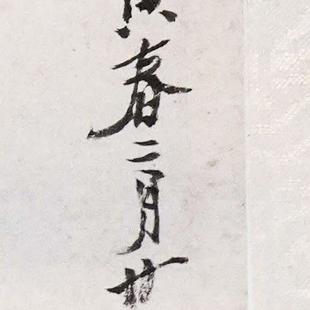 春二月廿